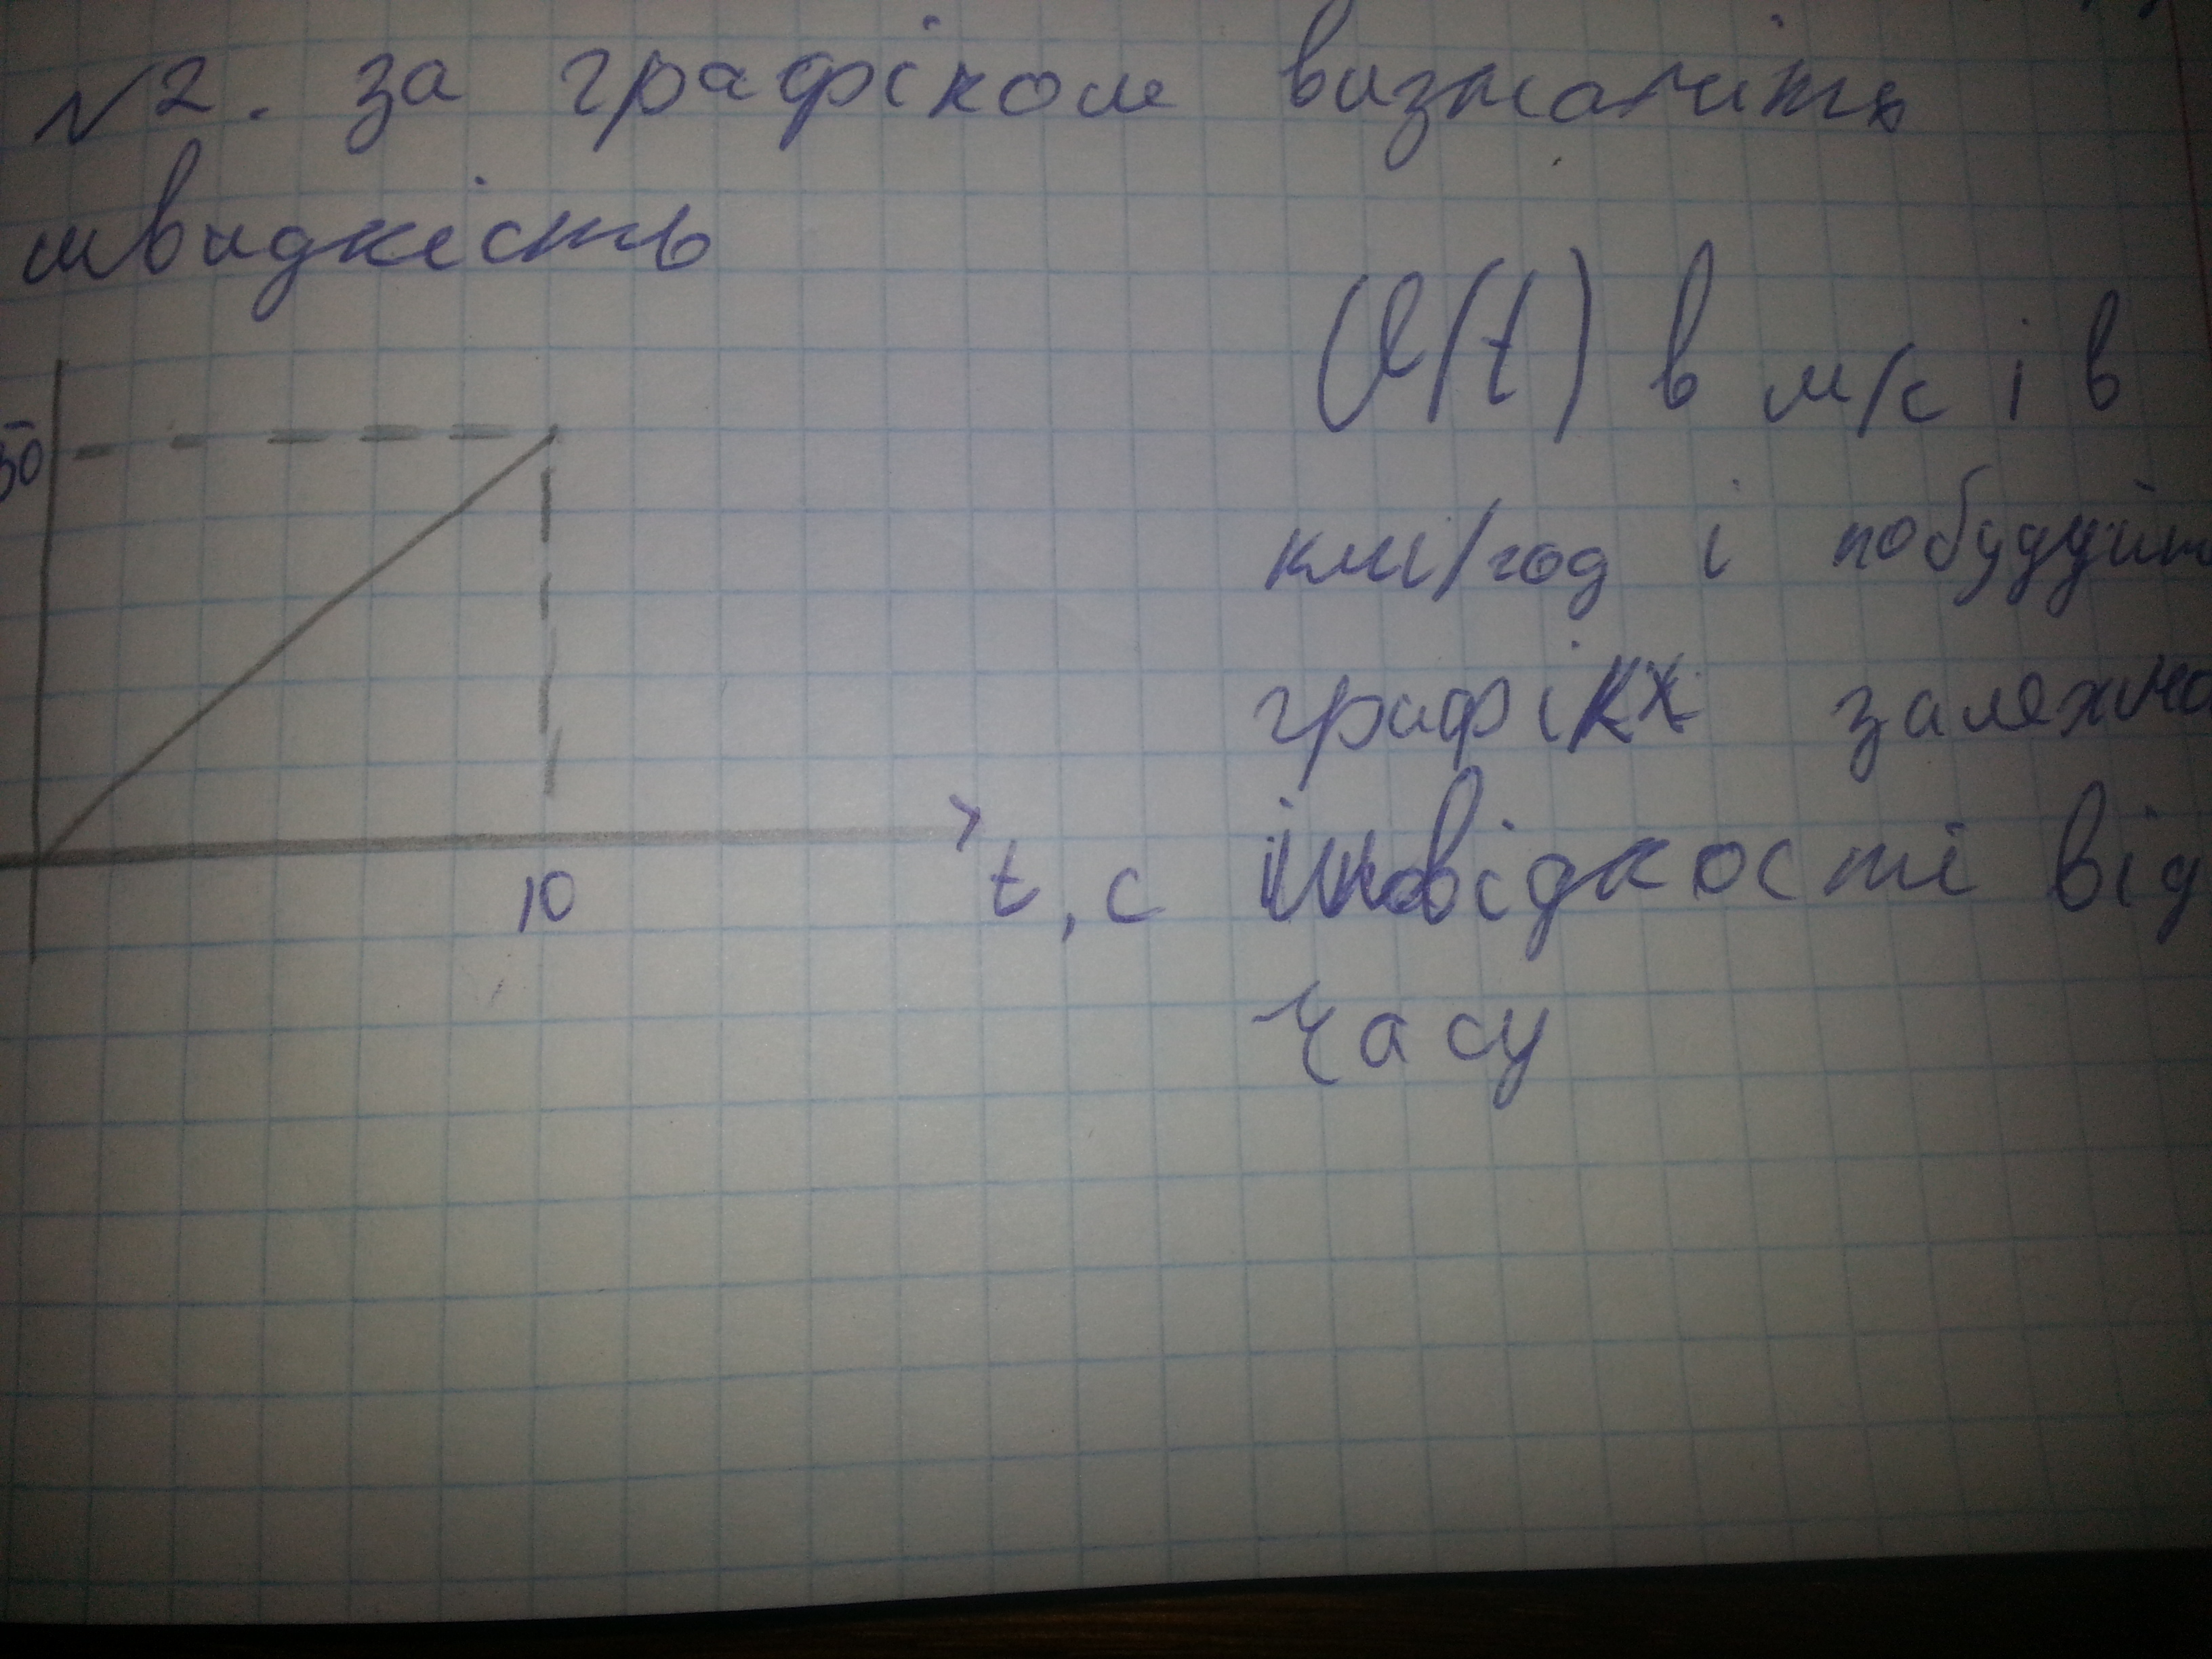 №2. за графіком визначить
швидкість
(V(t) в м/с і в
км/год і побудуйт
графік залежно
швідкості від
50
10
t, с
часу